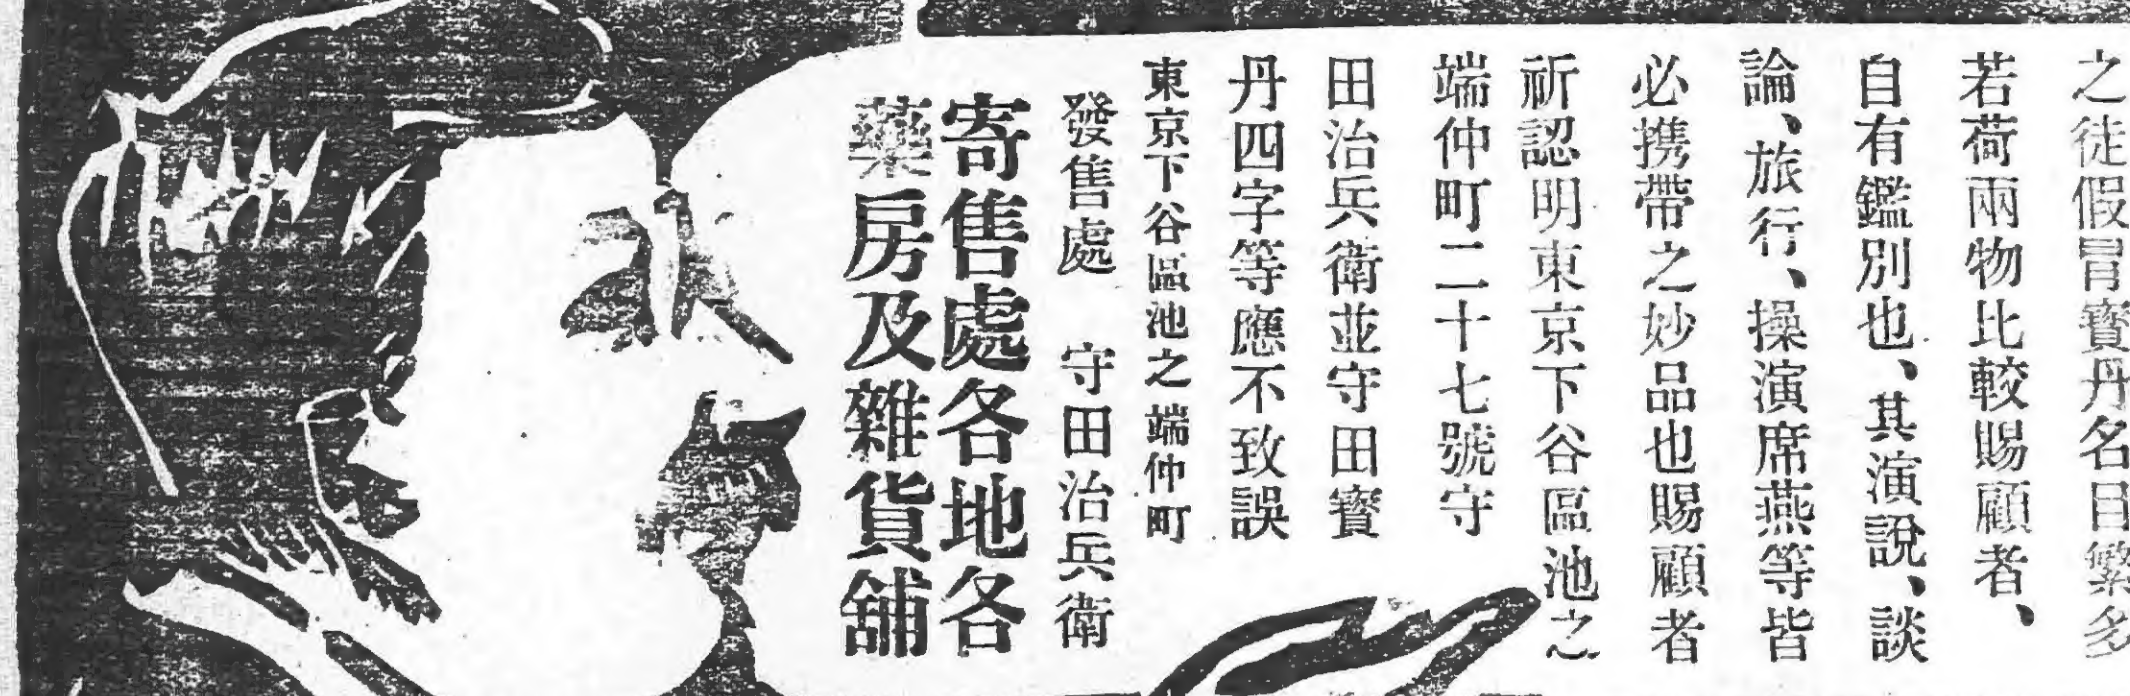 之徒假冒寳丹名目繁多
若荷兩物比較賜顧者、
自有鑑別也、其演說、談
論、旅行、操演席燕等皆
必携帶之妙品也賜顧者
祈認明東京下谷區池之
端仲町二十七號守
田治兵衛並守田寳
丹四字等應不致誤
東京下谷區池之端仲町
發售處 守田治兵衛
寄售處各地各
藥房及雜貨舖